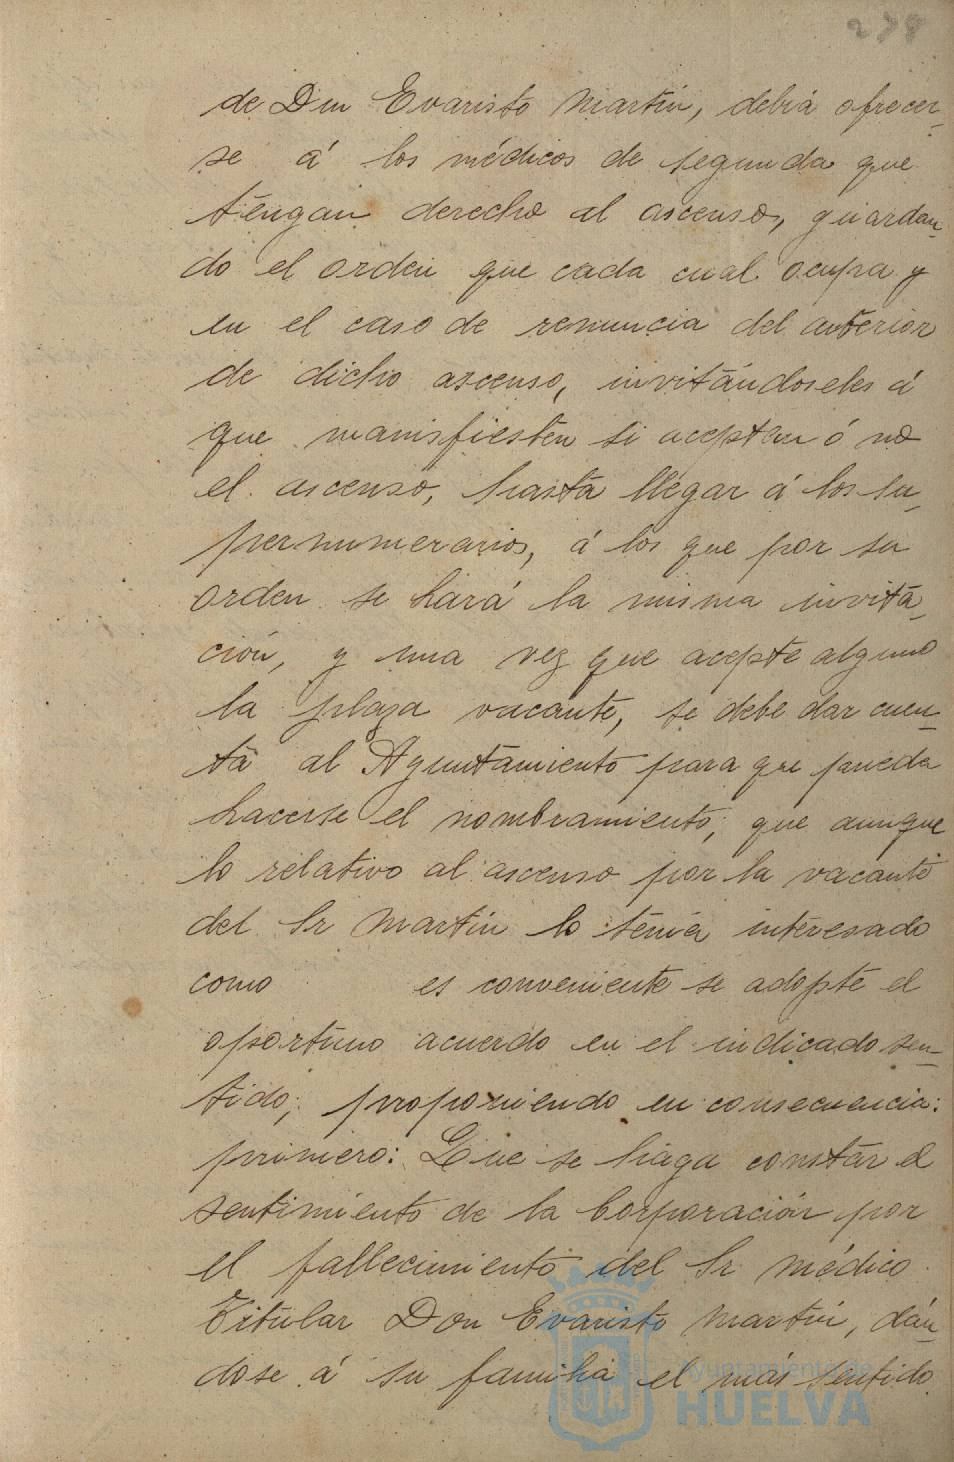 278
de Don Evaristo Martín, debiá ofrecer-
se á los médicos de segunda que
téngan derecho al ascenso, guardan-
do el orden que cada cual ocupa y
en el caso de renuncia del anterior
de dicho ascenso, invitándoseles á
que manisfiesten si acepten ó no
el ascenso, hasta llegar á los su-
pernumerarios, á los que por su
orden se hará la misma invita-
ción, y una vez que acepte alguno
la plaza vacante, se debe dar cuen-
ta al Ayuntamiento para que pueda
hacerse el nombramiento; que aunque
lo relativo al ascenso por la vacante
del Sr Martín lo tenia interesado
como es conveniente se adopte el
oportuno acuerdo en el indicado sen-
tido; proponiendo en consecuencia:
primero: Que se haga constar el
sentimiento de la Corporación por
el fallecimiento del Sr. médico
Titular Don Evaristo Martín, dán-
dose á su familia el más sentido
Ayuntamiento de
HUELVA